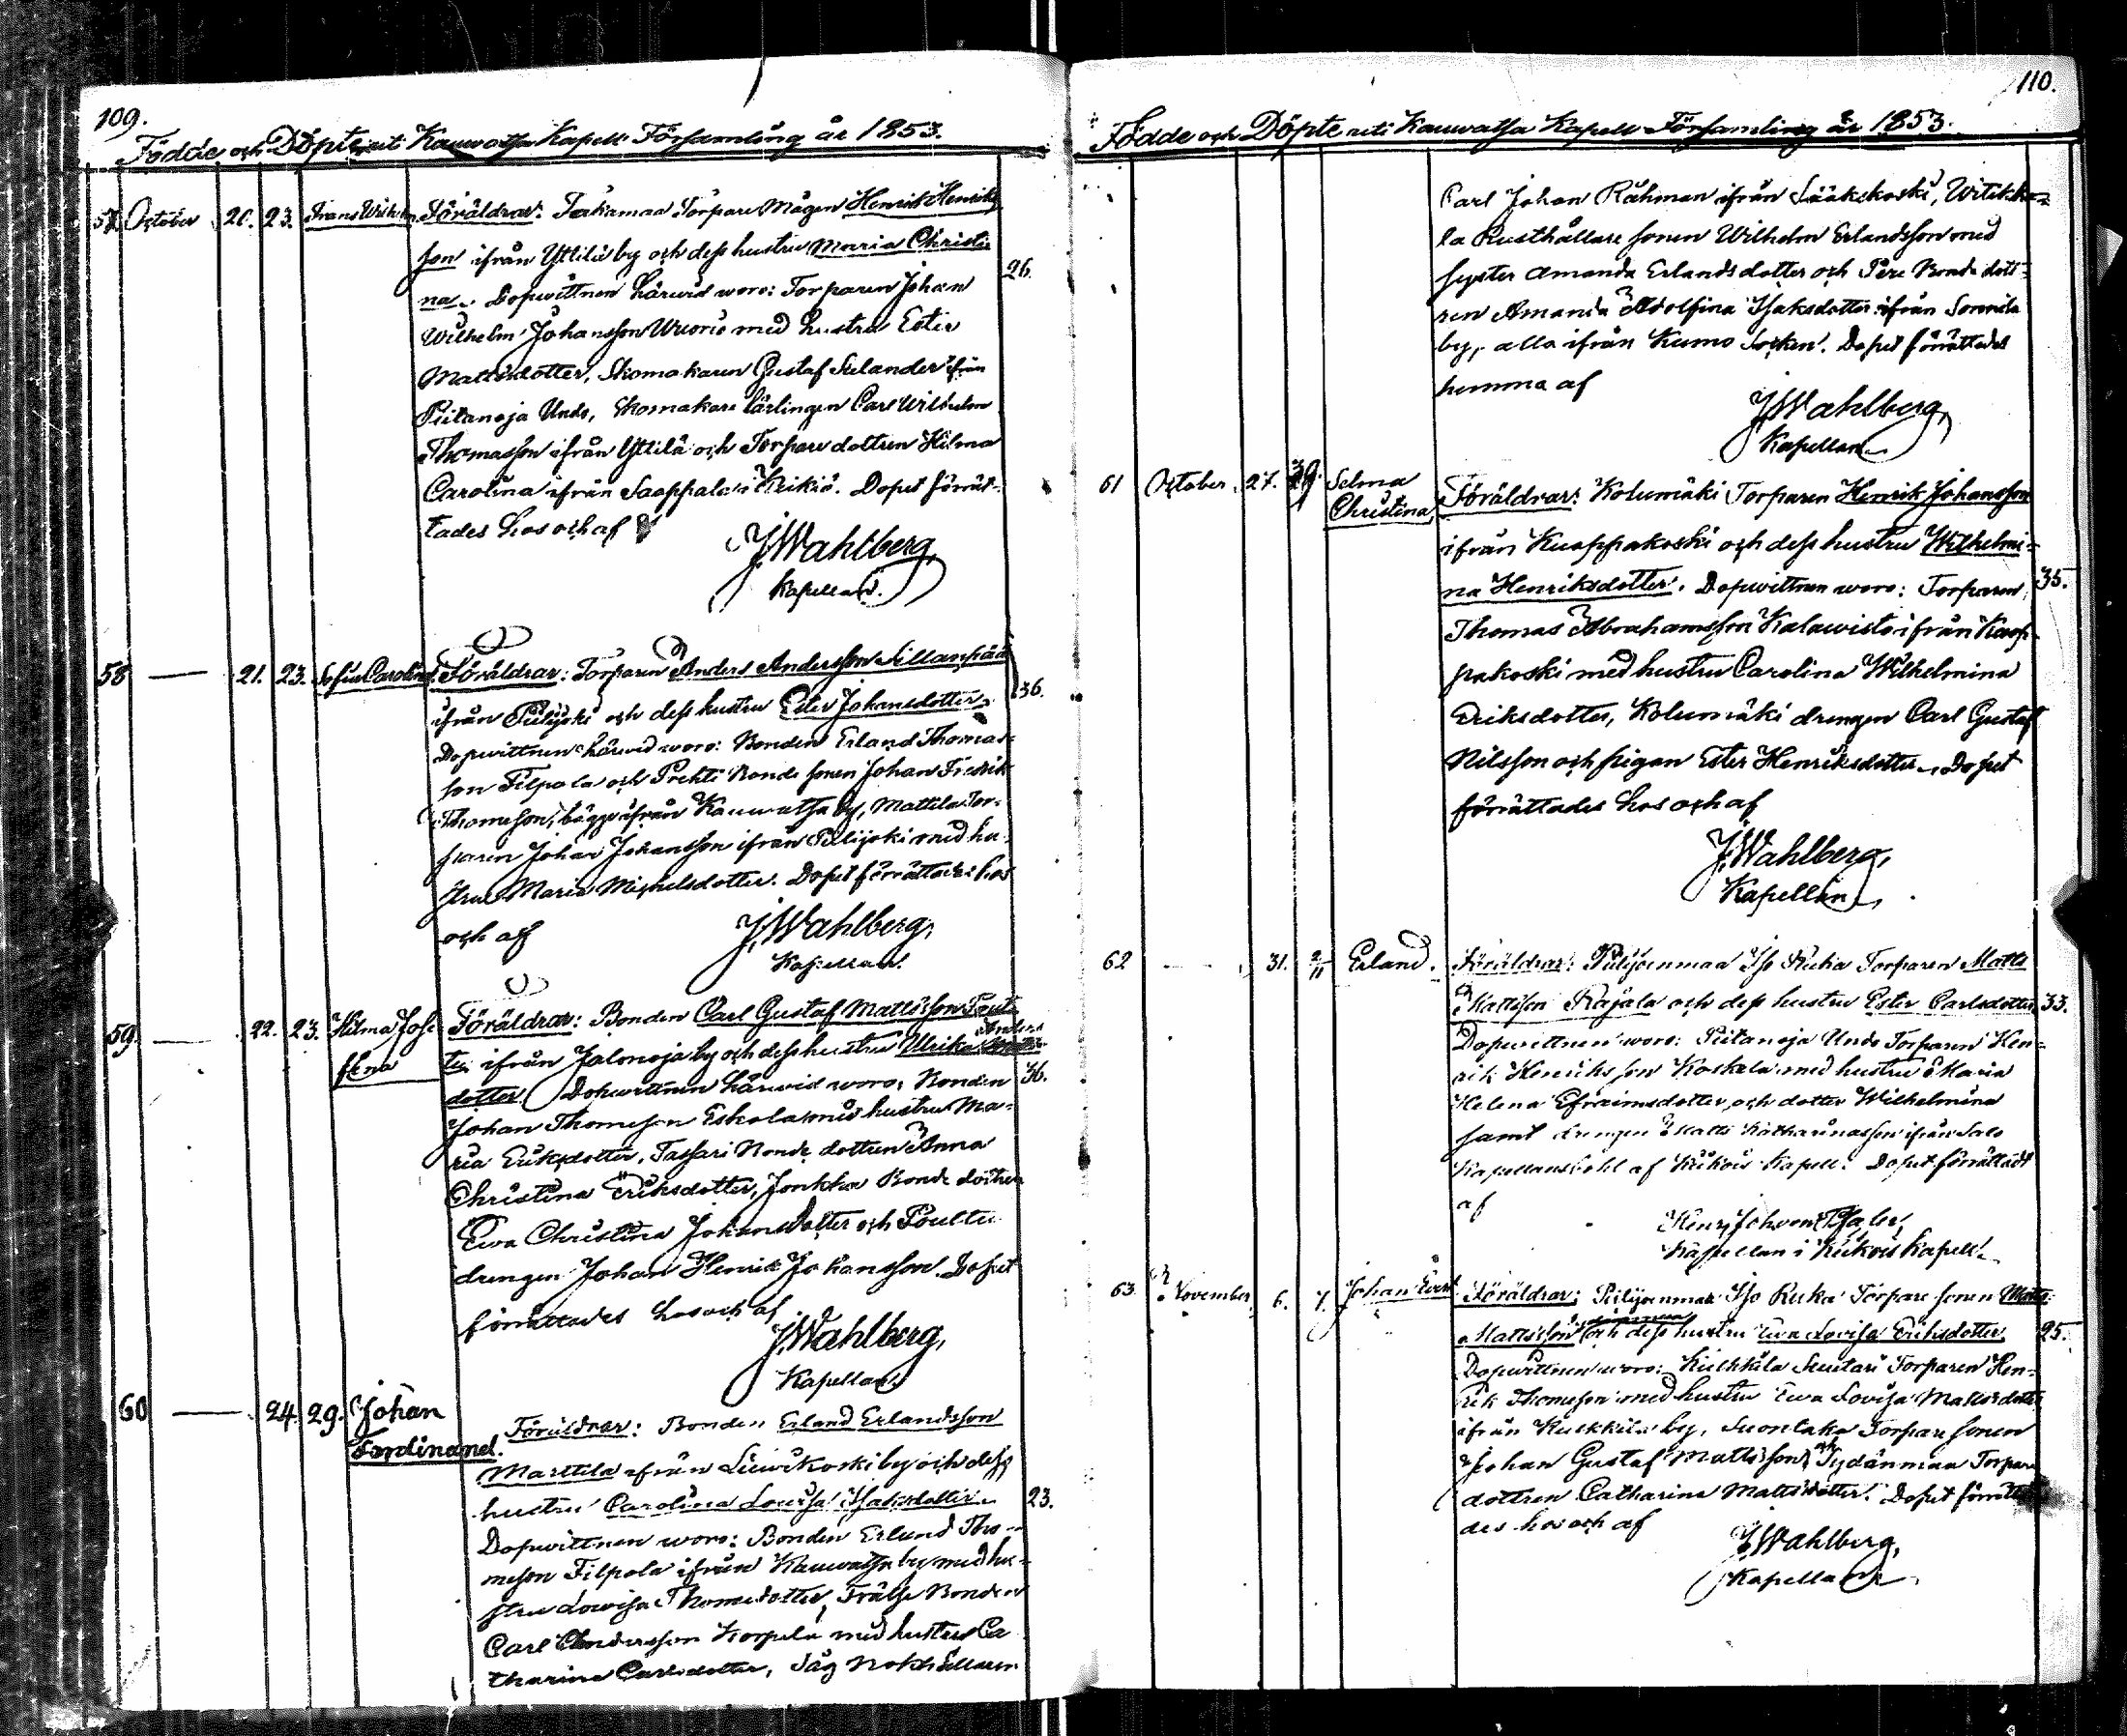 109.
Födde och Döpte uti Kauvatsa Kapell Församling år 1853.
57. October 20. 23. Frans Wilhelm Föräldrar: Torpare Mågen Henrik Henriks
son ifrån Yttilä by och dess hustru Maria Christi
na. Dopwittnen härwid woro: Torparen Johan 26.
Wilhelm Johansson med hustru Ester
Mattsdotter, Skomakaren Gustaf Selander ifrån
Piitanoja Unds, Skomakare lärlingen Carl Wilhelm
Thomasson ifrån Yttilä och Torpare dottren Hilma
Carolina ifrån i Kikois. Dopet förrät-
tades hos och af
J. Wahlberg,
Kapellan.
58 — 21. 23. Sofia Carolina. Föräldrar: Torparen Anders Andersson Sillanpää
ifrån Piilijoki och dess hustru Ester Johansdotter. 36.
Dopwittnen härwid woro: Bonden Erland Thomas-
son Filpola och Prehti Bonde sonen Johan Fredrik
Thomeson, bägge ifrån Kauvatsa by, Mattila Tor-
paren Johan Johansson ifrån Piilijoki med hu-
stru Maria Michelsdotter. Dopet förrättades hos
och af
J. Wahlberg,
Kapellan.
59. — 22. 23. Hilma Jose Föräldrar: Bonden Carl Gustaf Mattsson Poul
fina tu ifrån Jalonoja by och dess hustru Ulrika Anders
dotter. Dopwittnen härwid woro: Bonden 36.
Johan Thomeson Eskola med hustru Ma-
ria Eriksdotter, Tassari Bonde dottren Anna
Christina Eriksdotter, Jonkka Bonde dottren
Ewa Christina Johansdotter och Poultu
drengen Johan Henrik Johansson. Dopet
förrättades hos och af
J. Wahlberg,
Kapellan.
60 — 24. 29. Johan
Ferdinand. Föräldrar: Bonden Erland Erlandsson
Marttila ifrån Liewikoski by och dess
hustru Carolina Lovisa Isaksdotter. 23.
Dopwittnen woro: Bonden Erland Tho-
meson Filpola ifrån Kauvatsa by med hu-
stru Lowisa Thomedotter, Frälse Bonden
Carl Andersson Korpela med hustru Ca
tharina Carlsdotter, Såg Bokhållaren
110.
Födde och Döpte uti Kauvatsa Kapell Församling år 1853.
Carl Johan Råhman ifrån Lääkskoski, Witikka-
la Rusthållare sonen Wilhelm Erlandsson med
syster Amanda Erlandsdotter och Pere Bonde dott-
ren Amanda Adolfina Isaksdotter ifrån Sonnila
by, alla ifrån Kumo Socken. Dopet förrättades
hemma af
J. Wahlberg,
Kapellan.
61 October. 27. 29. Selma
Christina, Föräldrar: Kolumäki Torparen Henrik Johansson
ifrån Kuoppakoski och dess hustru Wilhelmi-
na Henriksdotter. Dopwittnen woro: Torparen 35.
Thomas Abrahamsson Kalawisto ifrån Kuop-
pakoski med hustru Carolina Wilhelmina
Eriksdotter, Kolumäki drengen Carl Gustaf
Nilsson och pigan Ester Henriksdotter. Dopet
förrättades hos och af
J. Wahlberg,
Kapellan.
62 — 31. 2/11 Erland. Föräldrar: Piilijoenmaa Iso Ruka Torparen Matts
Mattsson Rajala och dess hustru Ester Carlsdotter. 33.
Dopwittnen woro: Piitanoja Unds Torparen Hen-
rik Henriksson Koskela med hustru Maria
Helena Efraimsdotter, och dotter Wilhelmina
samt drengen Matts Katharinasson ifrån Salo
Kapellansbohl af Kikois Kapell. Dopet förrättadt
af
Kapellan i Kikois Kapell.
63. November 6. 7. Johan Evert Föräldrar: Piilijoenmaa Iso Ruka Torpare sonen Matts
Mattsson och dess hustru Ewa Lovisa Eriksdotter. 25.
Dopwittnen woro: Kulkkila Suutari Torparen Hen-
rik Thomeson med hustru Ewa Lovisa Mattsdotter
ifrån Kulkkila by, Suontaka Torpare sonen
Johan Gustaf Mattsson, och Sydänmaa Torpare
dottren Catharina Mattsdotter. Dopet förrätta-
des hos och af
J. Wahlberg,
Kapellan.